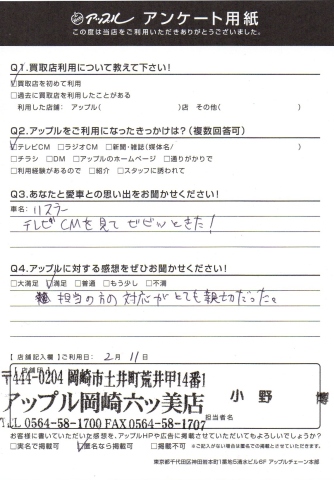 アップル アンケート用紙
この度は当店をご利用いただきありがとうございました。
Q1.買取店利用について教えて下さい!
☑買取店を初めて利用
□過去に買取店を利用したことがある
利用した店舗: アップル( )店 その他( )
Q2.アップルをご利用になったきっかけは?(複数回答可)
☑テレビCM □ラジオCM □新聞・雑誌(媒体名/ )
□チラシ □DM □アップルのホームページ □通りがかりで
□利用経験があるので □紹介 □スタッフに誘われて
Q3.あなたと愛車との思い出をお聞かせください!
車名: リスラー
テレビCMを見てゼビンときた!
Q4.アップルに対する感想をぜひお聞かせください!
□大満足 ☑満足 □普通 □もう少し □不満
担当の方の対応がとても親切だった。
【店舗記入欄】ご利用日: 2月 11日
〒444-0204 岡崎市土井町荒井甲14番1
アップル岡崎六ッ美店
小野 博
担当者名
TEL 0564-58-1700 FAX 0564-58-1707
お客様に書いていただいた感想を、アップルHPや広告に掲載させていただいてもよろしいでしょうか?
□実名で掲載可 ☑匿名なら掲載可 □掲載不可 ※ご記入がない場合は匿名での掲載とさせていただきます。
東京都千代田区神田岩本町1番地5清水ビル6F アップルチェーン本部